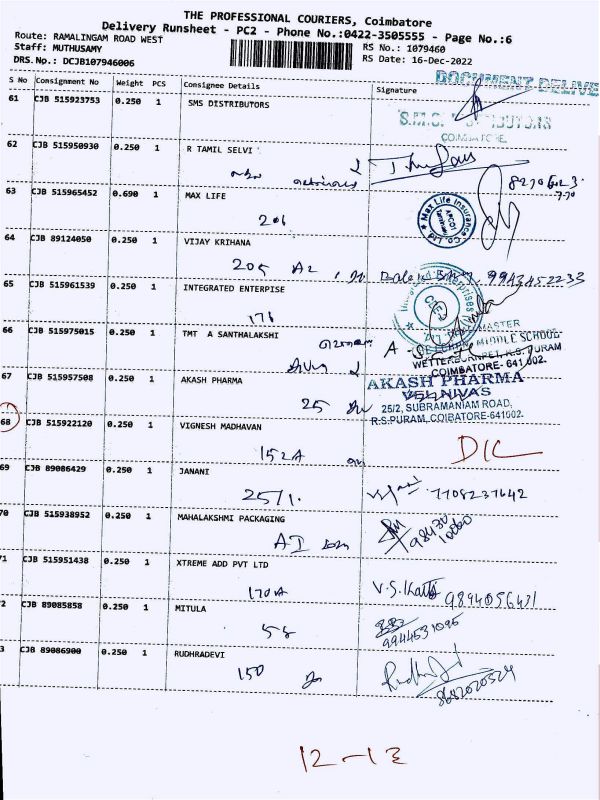 THE PROFESSIONAL COURIERS, Coimbatore
Delivery Runsheet - PC2 - Phone No.:0422-3505555 - Page No.:6
Route: RAMALINGAM ROAD WEST
Staff: MUTHUSAMY
RS No.: 1079460
DRS.No.: DCJB107946006
RS Date: 16-Dec-2022
S No Consignment No Weight PCS Consignee Details Signature
DOCUMENT DELIVE
61 CJB 515923753 0.250 1 SMS DISTRIBUTORS
COIMBATORE.
62 CJB 515950930 0.250 1 R TAMIL SELVI
63 CJB 515965452 0.690 1 MAX LIFE
206
Max Life Insurance Co. Ltd
64 CJB 89124050 0.250 1 VIJAY KRIHANA
205 A2 9943452233
65 CJB 515961539 0.250 1 INTEGRATED ENTERPISE
176
66 CJB 515975015 0.250 1 TMT A SANTHALAKSHI
MASTER
MIDDLE SCHOOL
R.S. PURAM
COIMBATORE- 641 002.
67 CJB 515957508 0.250 1 AKASH PHARMA
25
AKASH PHARMA
VEL NIVAS
25/2, SUBRAMANIAM ROAD,
R.S.PURAM, COIBATORE-641002.
68 CJB 515922120 0.250 1 VIGNESH MADHAVAN
152A
D/C
69 CJB 89086429 0.250 1 JANANI
257/1. 7708237642
70 CJB 515938952 0.250 1 MAHALAKSHMI PACKAGING
98430
10060
71 CJB 515951438 0.250 1 XTREME ADD PVT LTD
170A V.S. 9894056431
2 CJB 89085858 0.250 1 MITULA
58 9944531095
3 CJB 89086900 0.250 1 RUDHRADEVI
150
12-13